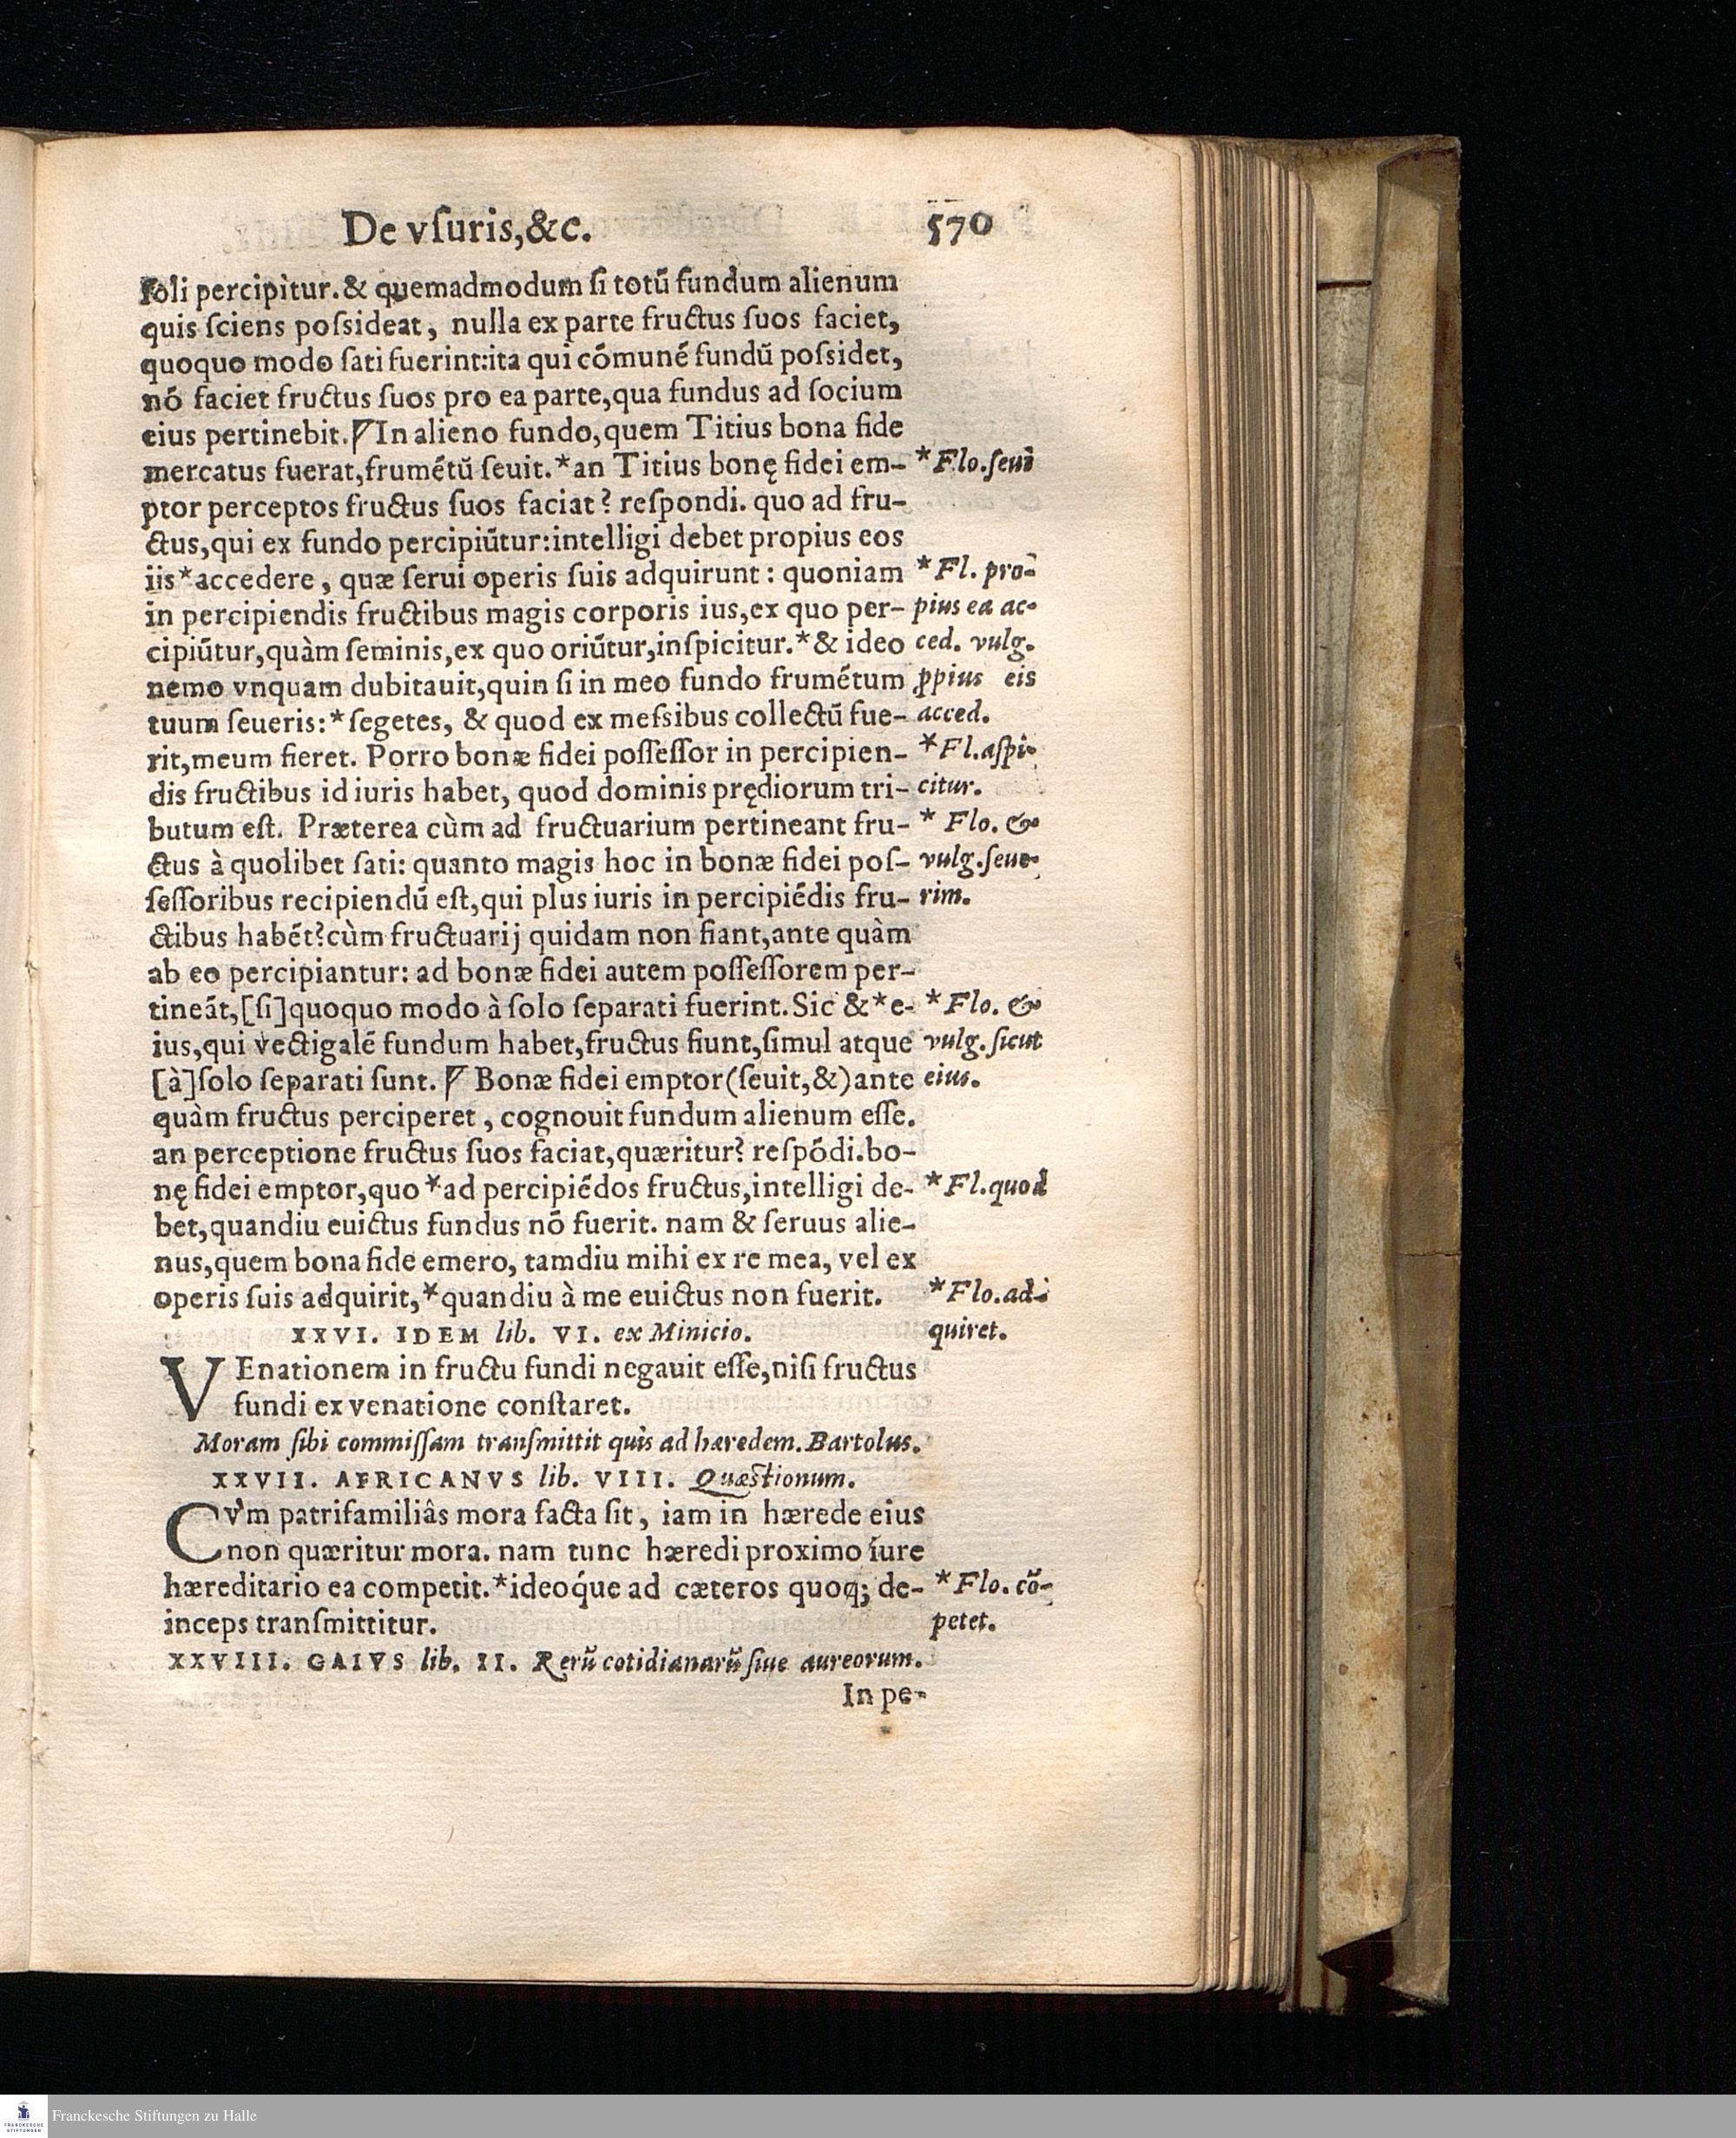 De vſuris,&c. 570
ſoli percipitur.& quemadmodum ſi totũ fundum alienum
quis ſciens poſsideat, nulla ex parte fructus ſuos faciet,
quoquo modo ſati fuerint:ita qui cõmunẽ fundũ poſsidet,
nõ faciet fructus ſuos pro ea parte,qua fundus ad ſocium
eius pertinebit.¶In alieno fundo,quem Titius bona fide
mercatus fuerat,frumẽtũ ſeuit.*an Titius bonę fidei em- *Flo.ſeui
ptor perceptos fructus ſuos faciat? reſpondi. quo ad fru-
ctus,qui ex fundo percipiũtur:intelligi debet propius eos
iis*accedere, quæ ſerui operis ſuis adquirunt: quoniam *Fl. pro-
in percipiendis fructibus magis corporis ius,ex quo per- pius ea ac-
cipiũtur,quàm ſeminis,ex quo oriũtur,inſpicitur.*& ideo ced. vulg.
nemo vnquam dubitauit,quin ſi in meo fundo frumẽtum ꝓpius eis
tuum ſeueris:*ſegetes, & quod ex meſsibus collectũ fue- acced.
rit,meum fieret. Porro bonæ fidei poſſeſſor in percipien- *Fl.aſpi-
dis fructibus id iuris habet, quod dominis prędiorum tri- citur.
butum eſt. Præterea cùm ad fructuarium pertineant fru- * Flo. &
ctus à quolibet ſati: quanto magis hoc in bonæ fidei poſ- vulg.ſeue-
ſeſſoribus recipiendũ eſt,qui plus iuris in percipiẽdis fru- rim.
ctibus habẽt?cùm fructuarij quidam non fiant,ante quàm
ab eo percipiantur: ad bonæ fidei autem poſſeſſorem per-
tineãt,[ſi]quoquo modo à ſolo ſeparati fuerint.Sic &*e- *Flo. &
ius,qui vectigalẽ fundum habet,fructus fiunt,ſimul atque vulg. ſicut
[à]ſolo ſeparati ſunt.¶ Bonæ fidei emptor(ſeuit,&)ante eius.
quàm fructus perciperet, cognouit fundum alienum eſſe.
an perceptione fructus ſuos faciat,quæritur? reſpõdi.bo-
nę fidei emptor,quo*ad percipiẽdos fructus,intelligi de- *Fl.quod
bet,quandiu euictus fundus nõ fuerit. nam & ſeruus alie-
nus,quem bona fide emero, tamdiu mihi ex re mea, vel ex
operis ſuis adquirit,*quandiu à me euictus non fuerit. *Flo.ad-
XXVI. IDEM lib. VI. ex Minicio. quiret.
VEnationem in fructu fundi negauit eſſe,niſi fructus
fundi ex venatione conſtaret.
Moram ſibi commiſſam tranſmittit quis ad hæredem. Bartolus.
XXVII. AFRICANVS lib. VIII. Quæſtionum.
CV̀m patrifamiliâs mora facta ſit, iam in hærede eius
non quæritur mora. nam tunc hæredi proximo iure
hæreditario ea competit.*ideoq́ue ad cæteros quoq; de- *Flo. cõ-
inceps tranſmittitur. petet.
XXVIII. GAIVS lib. II. Rerũ cotidianarũ ſiue aureorum.
In pe-
Franckesche Stiftungen zu Halle